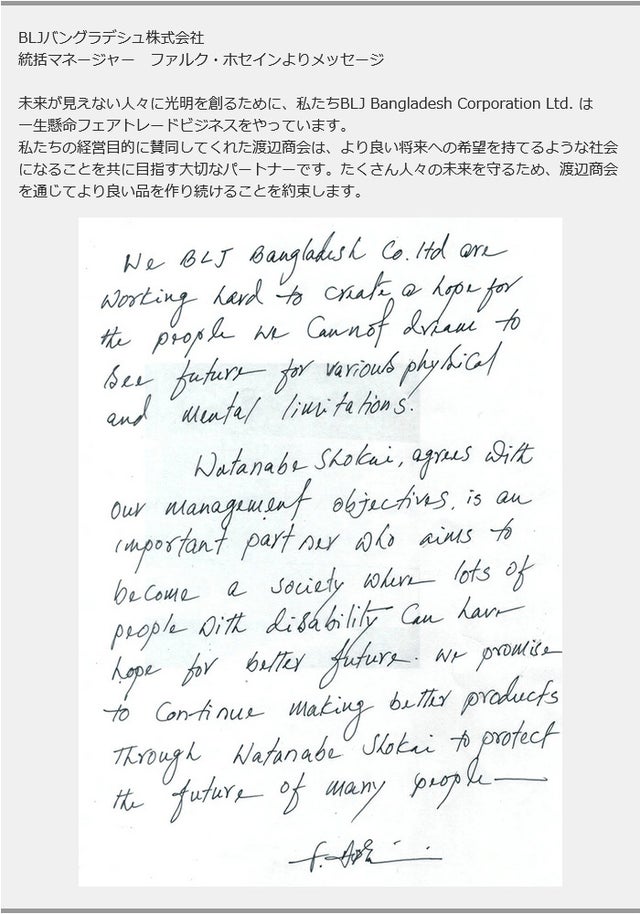 BLJバングラデシュ株式会社
統括マネージャー　ファルク・ホセインよりメッセージ
未来が見えない人々に光明を創るために、私たちBLJ Bangladesh Corporation Ltd. は
一生懸命フェアトレードビジネスをやっています。
私たちの経営目的に賛同してくれた渡辺商会は、より良い将来への希望を持てるような社会
になることを共に目指す大切なパートナーです。たくさん人々の未来を守るため、渡辺商会
を通じてより良い品を作り続けることを約束します。
We BLJ Bangladesh Co. ltd are
working hard to create a hope for
the people we Cannot dream to
see future for various physical
and mental limitations.
Watanabe Shokai, agrees with
our management objectives, is an
important partner who aims to
become a society where lots of
people with disability Can have
hope for better future. We promise
to Continue making better products
through Watanabe Shokai to protect
the future of many people